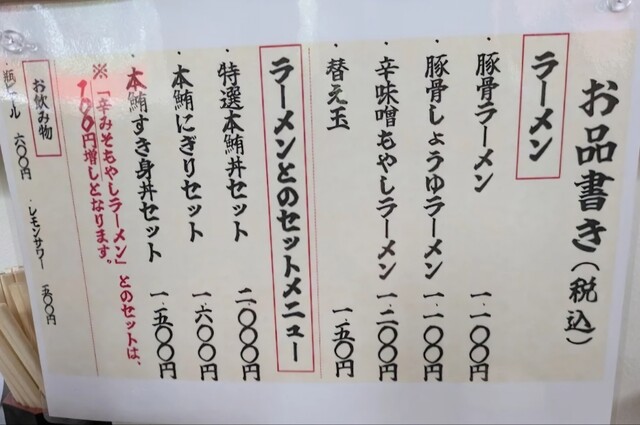 お品書き(税込)
ラーメン
・豚骨ラーメン 一、一〇〇円
・豚骨しょうゆラーメン 一、一〇〇円
・辛味噌もやしラーメン 一、二〇〇円
・替え玉 一五〇円
ラーメンとのセットメニュー
・特選本鮪丼セット 二、〇〇〇円
・本鮪にぎりセット 一、六〇〇円
・本鮪すき身丼セット 一、五〇〇円
※「辛みそもやしラーメン」とのセットは、
100円増しとなります。
お飲み物
・瓶ビール 六〇〇円 ・レモンサワー 五〇〇円